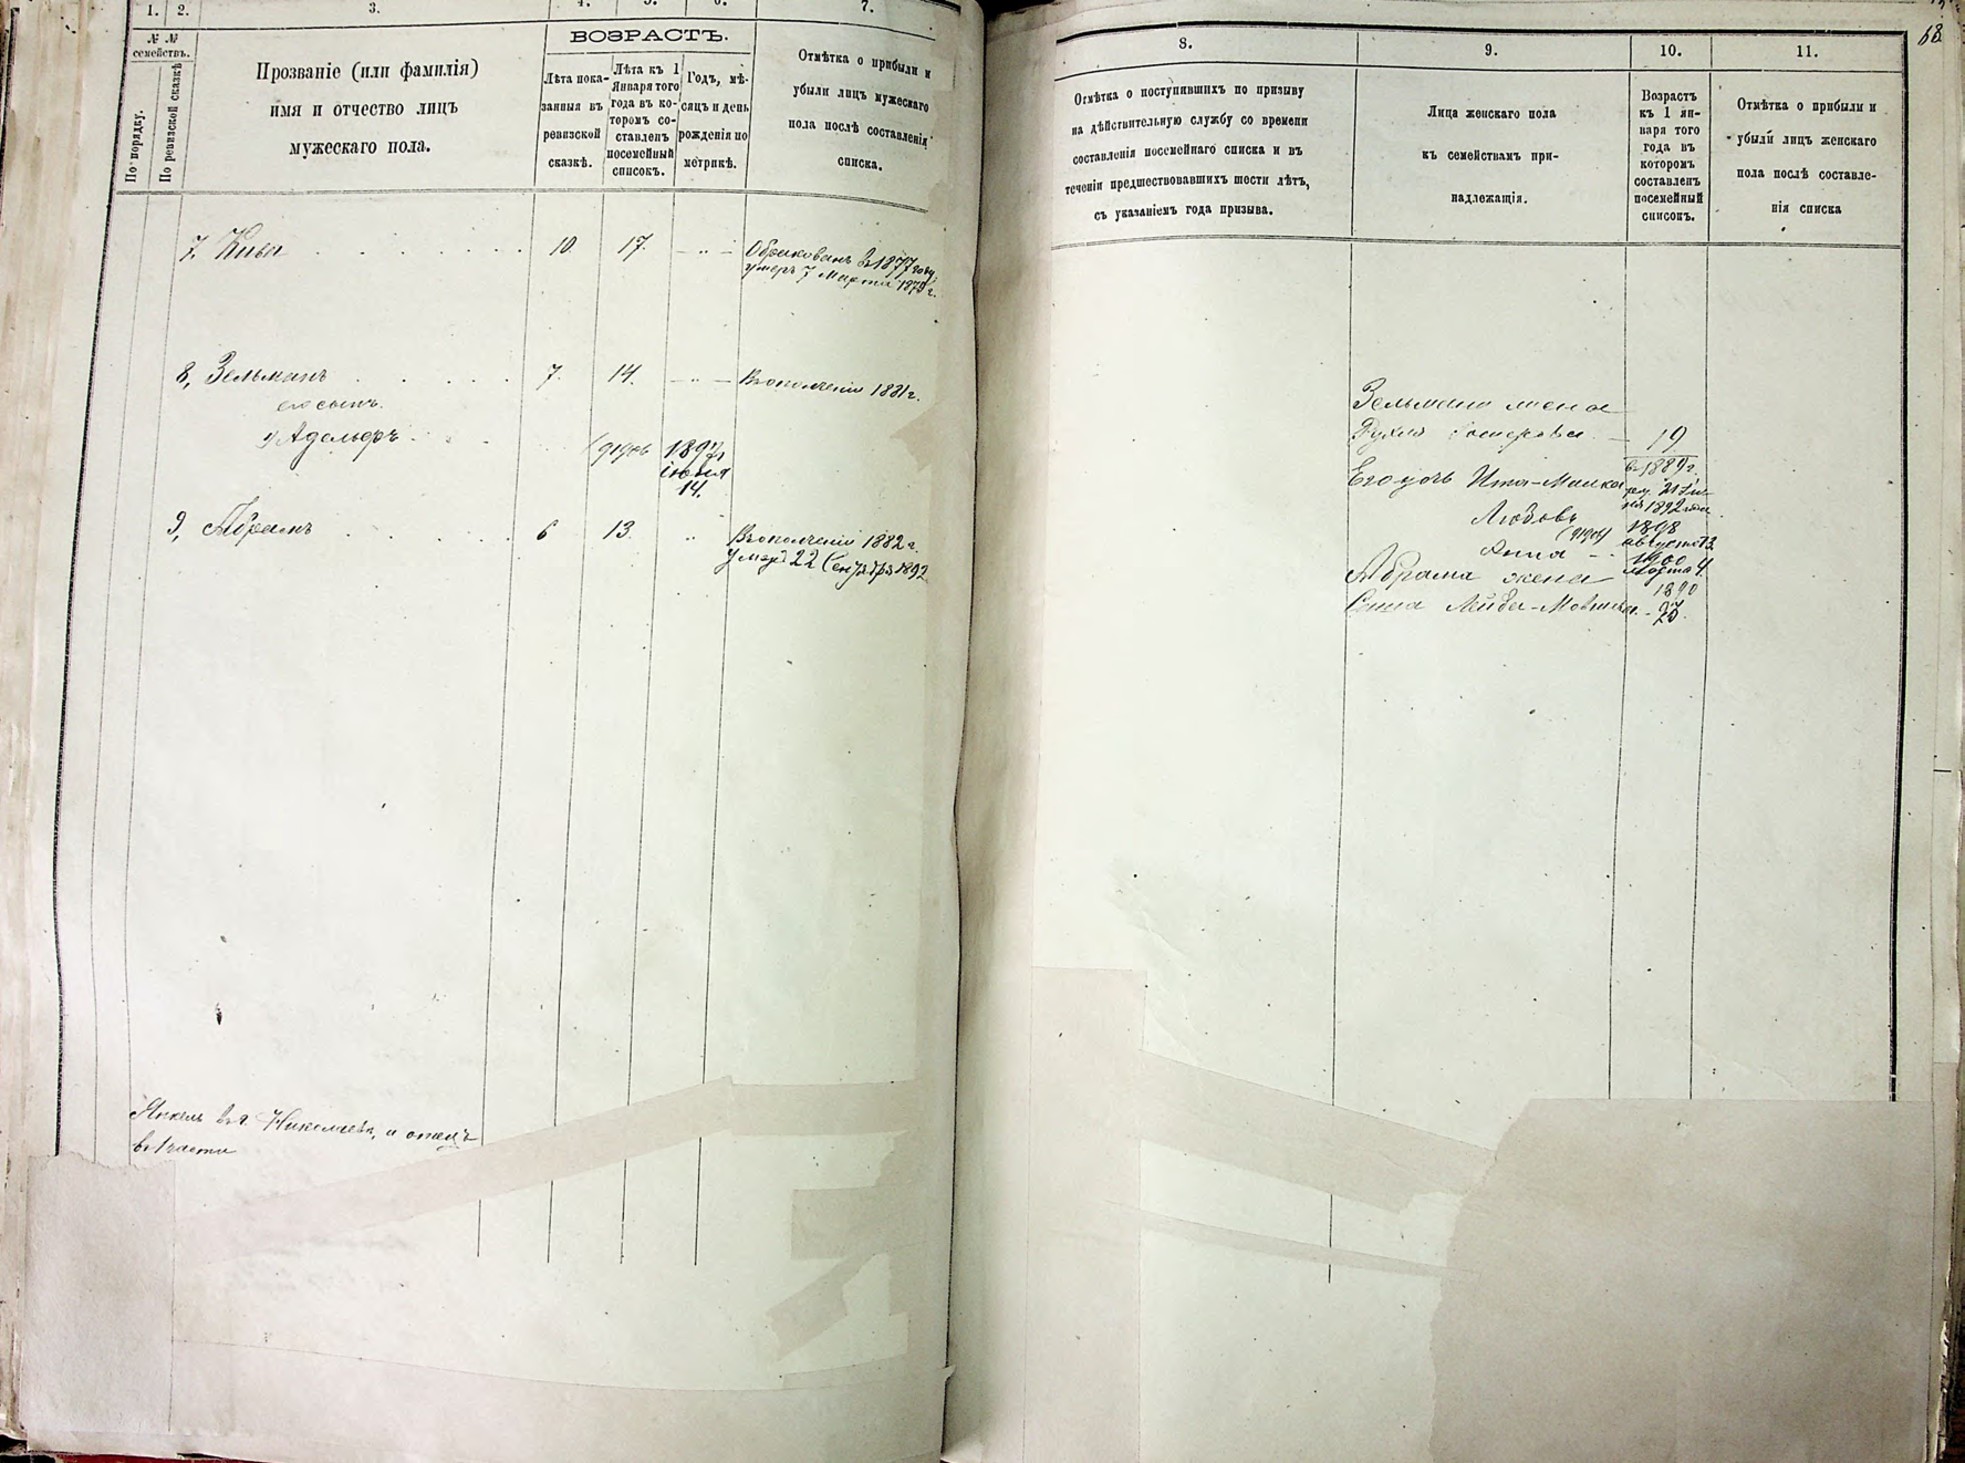 1. 2. 3. 4. 5. 6. 7.
№ №
семействъ.
По порядку.
По ревизской сказкѣ
Прозваніе (или фамилія)
имя и отчество лицъ
мужескаго пола.
ВОЗРАСТЪ.
Лѣта пока-
занныя въ
ревизской
сказкѣ.
Лѣта къ 1
Января того
года въ ко-
торомъ со-
ставленъ
посемейный
списокъ.
Годъ, мѣ-
сяцъ и день
рожденія по
метрикѣ.
Отмѣтка о прибыли и
убыли лицъ мужескаго
пола послѣ составленія
списка.
7. Кива 10. 17. — „ — Обракованъ въ 1877 году.
умеръ 7 Марта 187 г.
8, Зельманъ 7. 14. — „ — Въ ополченіи 1881 г.
его сынъ.
1) Адольфъ 1897 г.
іюня
14.
9, Абрамъ 6 13. „ Въ ополченіи 1882 г.
Умеръ 22 Сентября 1892
Янкель въ г. Николаевѣ, и отецъ
въ 1 части
68
8. 9. 10. 11.
Отмѣтка о поступившихъ по призыву
на дѣйствительную службу со времени
составленія посемейнаго списка и въ
теченіи предшествовавшихъ шести лѣтъ,
съ указаніемъ года призыва.
Лица женскаго пола
къ семействамъ при-
надлежащія.
Возрастъ
къ 1 ян-
варя того
года въ
которомъ
составленъ
посемейный
списокъ.
Отмѣтка о прибыли и
убыли лицъ женскаго
пола послѣ составле-
нія списка
Зельмана жена
Рухля — 19
въ 1889 г.
Его дочь Ита-Малка 21
1892 года
Любовь 1898
августа 13
Анна — 1900
Марта 4.
Абрама жена 1890
Сима Лейба-Мовшева - 23.